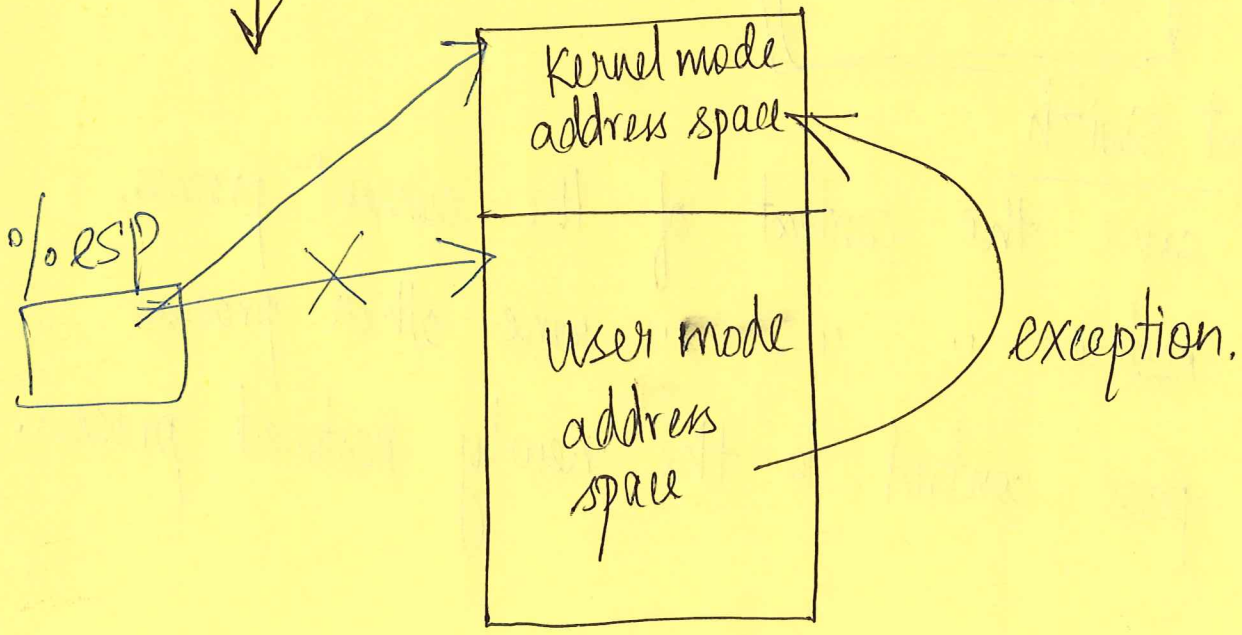 Kernel mode
address space
%esp
User mode
address
space
exception.